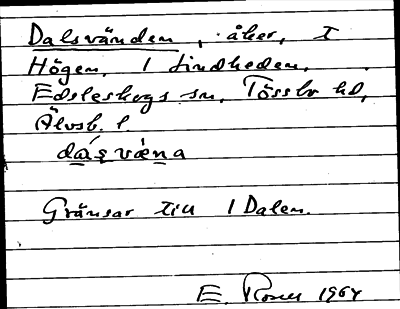 Dalsvänden, åker, I
Högen, 1 Lindheden,
Edsleskogs sn, Tössbo hd,
Älvsb. l.
dásvæna
Gränsar till 1 Dalen.
E. 1964